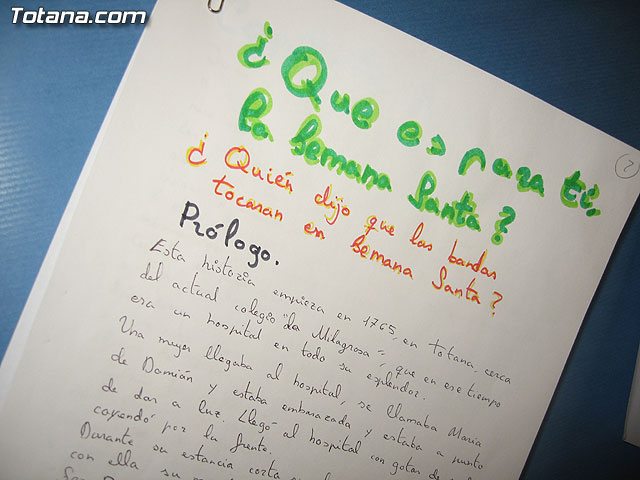 Totana.com
2
¿Que es para ti,
la Semana Santa?
¿Quién dijo que las bandas
tocaran en Semana Santa?
Prólogo.
Esta historia empieza en 1765, en Totana, cerca
del actual colegio "La Milagrosa", que en ese tiempo
era un hospital en todo su esplendor.
Una mujer llegaba al hospital, se llamaba María
de Damián y estaba embarazada y estaba a punto
de dar a luz. Llegó al hospital con gotas de
cayendo por la frente.
Durante su estancia corta
con ella su